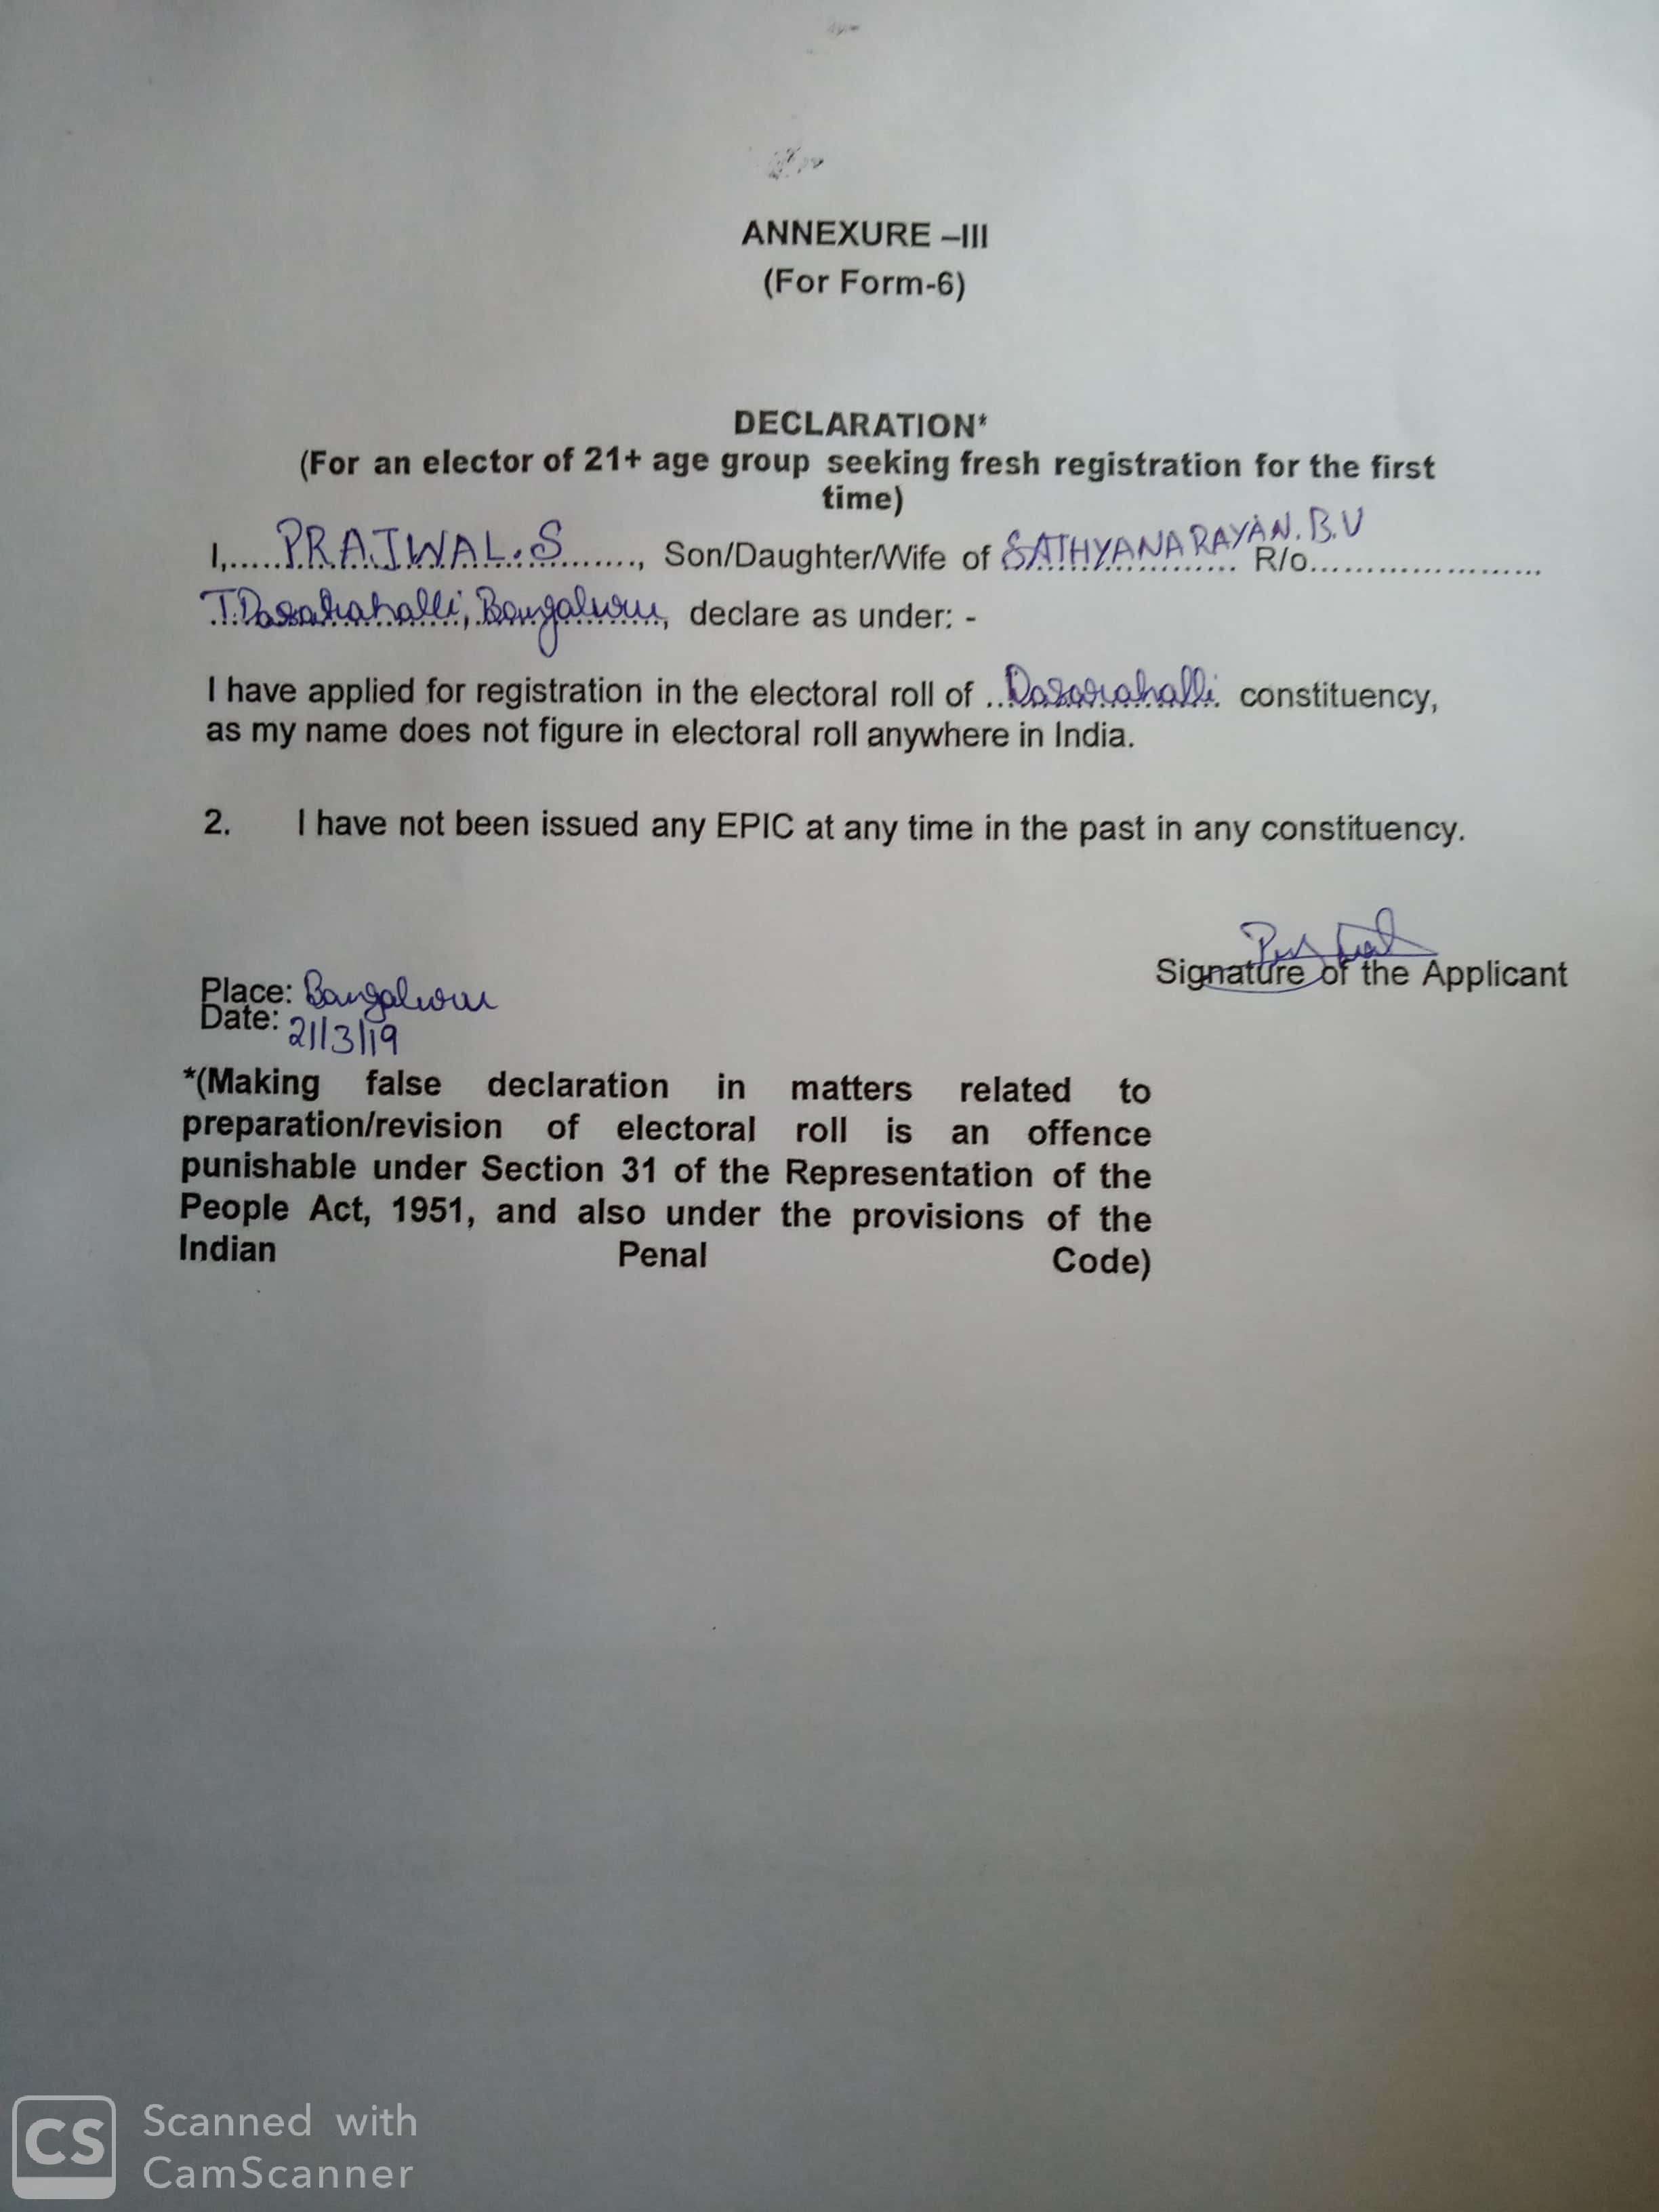 ANNEXURE –III
(For Form-6)
DECLARATION*
(For an elector of 21+ age group seeking fresh registration for the first
time)
I,.....PRAJWAL.S........, Son/Daughter/Wife of SATHYANARAYAN.B.V R/o.......................
T.Dasarahalli, Bangaluru, declare as under: -
I have applied for registration in the electoral roll of ..Dasarahalli. constituency,
as my name does not figure in electoral roll anywhere in India.
2. I have not been issued any EPIC at any time in the past in any constituency.
Signature of the Applicant
Place: Bangaluru
Date: 21/3/19
*(Making false declaration in matters related to
preparation/revision of electoral roll is an offence
punishable under Section 31 of the Representation of the
People Act, 1951, and also under the provisions of the
Indian Penal Code)
CS Scanned with
CamScanner